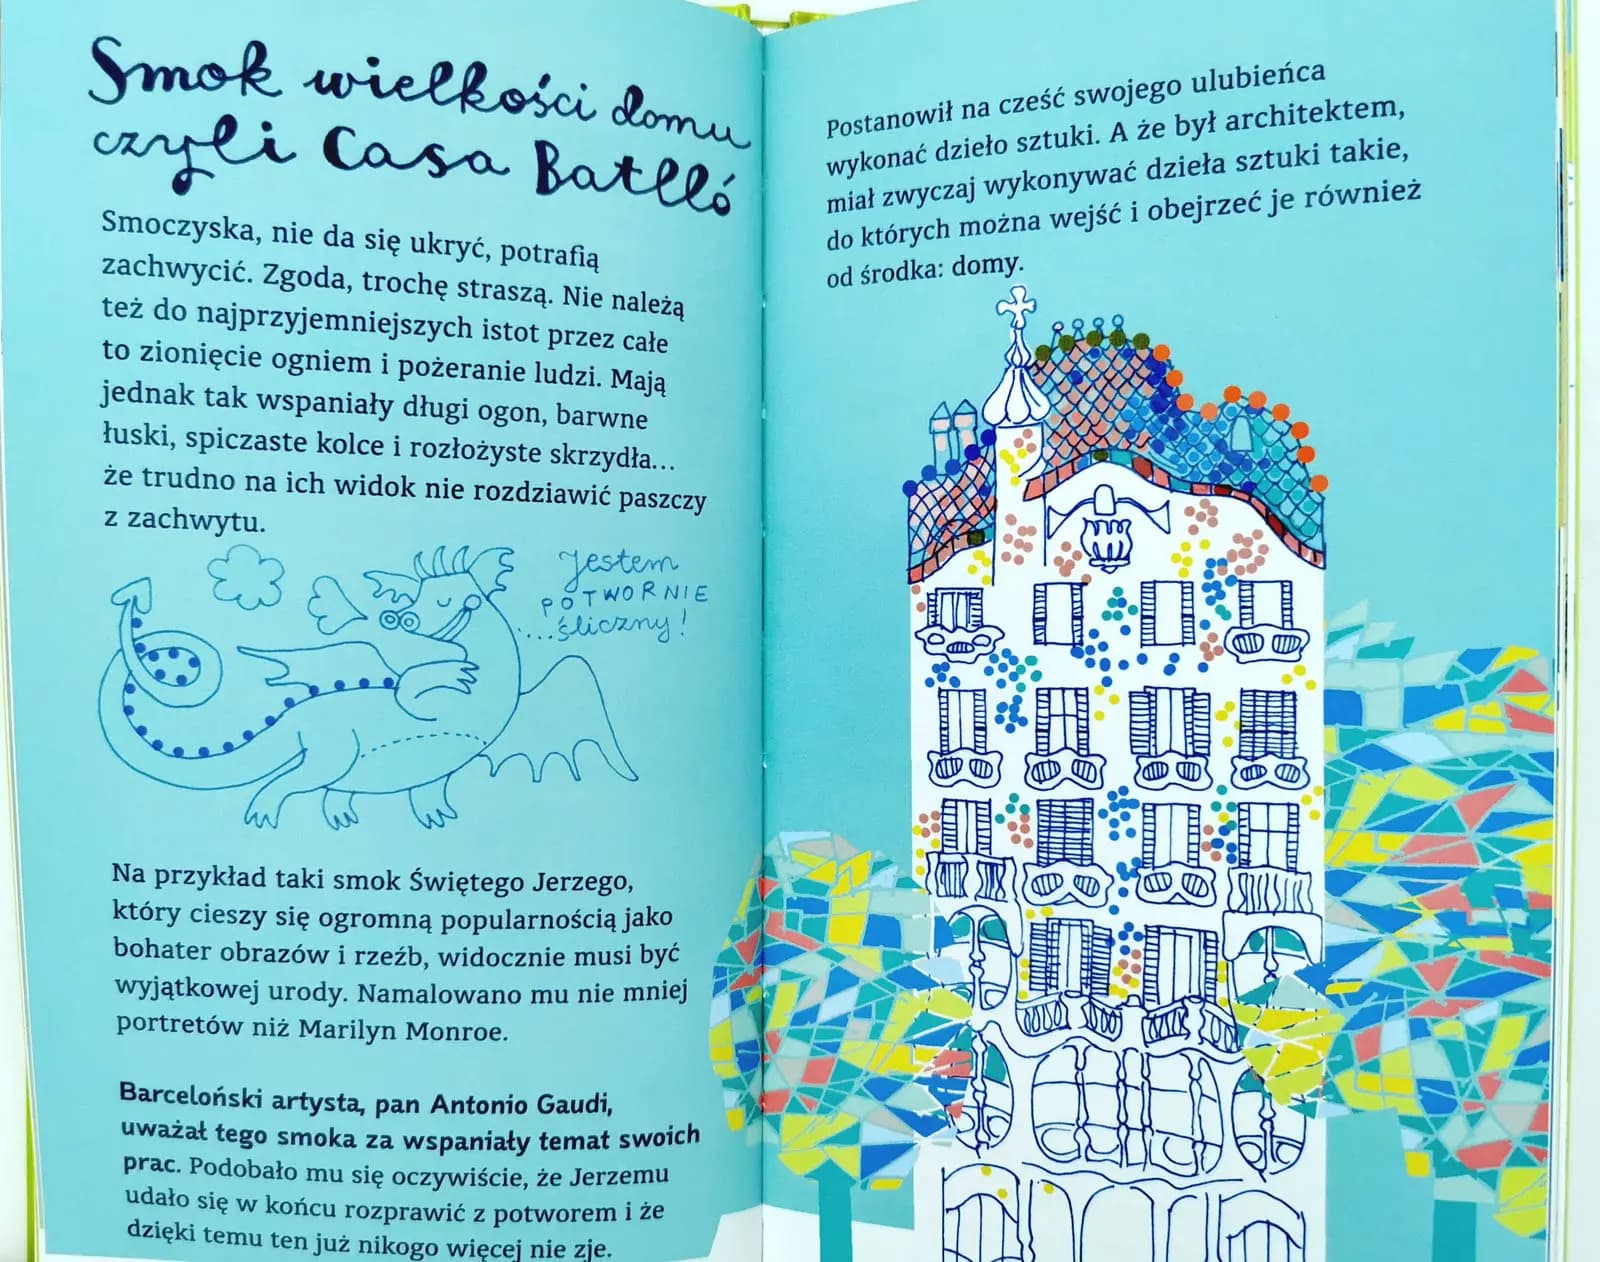 Smok wielkości domu
czyli Casa Batlló
Smoczyska, nie da się ukryć, potrafią
zachwycić. Zgoda, trochę straszą. Nie należą
też do najprzyjemniejszych istot przez całe
to zionięcie ogniem i pożeranie ludzi. Mają
jednak tak wspaniały długi ogon, barwne
łuski, spiczaste kolce i rozłożyste skrzydła...
że trudno na ich widok nie rozdziawić paszczy
z zachwytu.
Jestem
POTWORNIE
...śliczny!
Na przykład taki smok Świętego Jerzego,
który cieszy się ogromną popularnością jako
bohater obrazów i rzeźb, widocznie musi być
wyjątkowej urody. Namalowano mu nie mniej
portretów niż Marilyn Monroe.
Barceloński artysta, pan Antonio Gaudi,
uważał tego smoka za wspaniały temat swoich
prac. Podobało mu się oczywiście, że Jerzemu
udało się w końcu rozprawić z potworem i że
dzięki temu ten już nikogo więcej nie zje.
Postanowił na cześć swojego ulubieńca
wykonać dzieło sztuki. A że był architektem,
miał zwyczaj wykonywać dzieła sztuki takie,
do których można wejść i obejrzeć je również
od środka: domy.